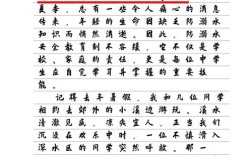 夏季，总有一些令人痛心的消息
传来，年轻的生命因缺乏防溺水
知识而悄然消逝。因此，防溺水
安全教育刻不容缓，它不仅是学
校、家庭的责任，更是每位中学
生应自觉学习并掌握的重要技
能。
记得去年暑假，我和几位同学
相约去郊外的小溪边游玩。溪水
清澈见底，凉爽宜人。正当我们
沉浸在欢乐中时，一位不慎滑入
深水区的同学突然呼救，那一